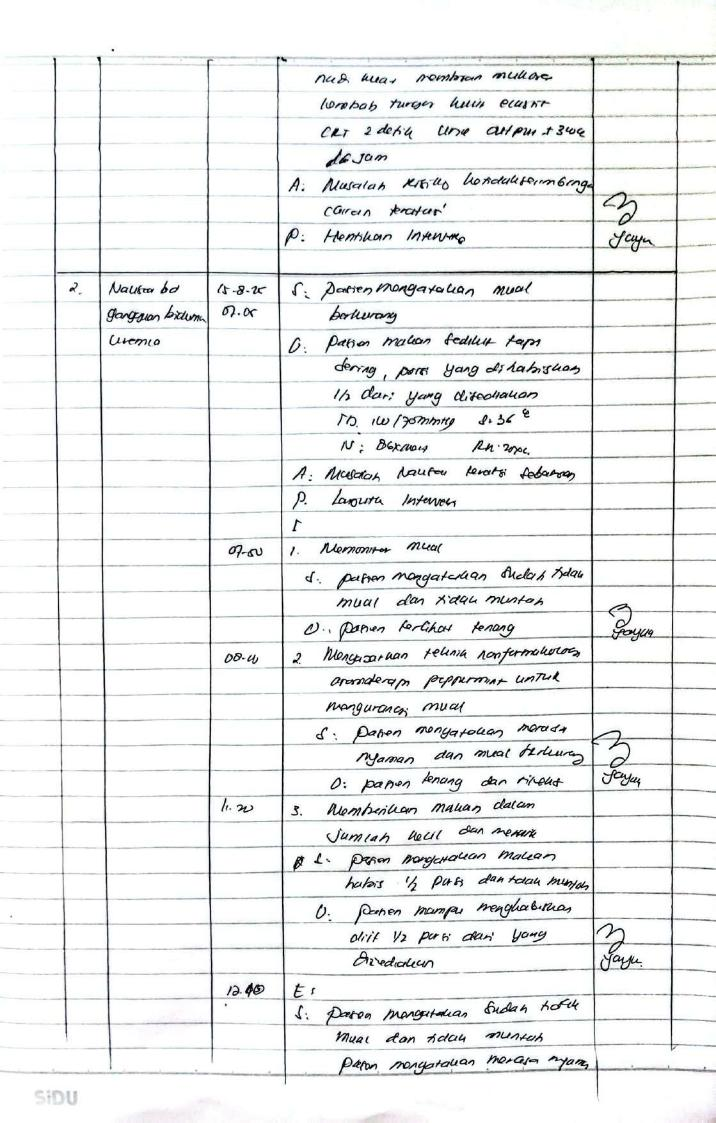 membran mukosa
lembab turgor kulit elastis
CRT 2 detik Urine output ±
jam
A: Masalah cairan teratasi
P: Hentikan Intervensi
Yayu
2. Nausea bd gangguan biokimia Uremia
07.05
S: pasien mengatakan mual
berkurang
O: pasien makan sedikit tapi
sering, porsi yang dihabiskan
1/2 dari yang disediakan
TD. /70mmHg S: 36
N: 86x/menit RR:
A: Masalah Nausea teratasi sebagian
P. Lanjutkan Intervensi
I
07.50 1. Memonitor mual
S: pasien mengatakan sudah tidak
mual dan tidak muntah
O: pasien terlihat tenang
Yayu
2. Mengajarkan teknik nonfarmakologi
aromaterapi peppermint untuk
mengurangi mual
S: pasien mengatakan merasa
nyaman dan mual berkurang
O: pasien tenang dan rileks
Yayu
11.20 3. Memberikan makan dalam
jumlah kecil dan menarik
S: pasien mengatakan makan
habis 1/2 porsi dan tidak muntah
O: pasien mampu menghabiskan
diit 1/2 porsi dari yang
disediakan
Yayu.
E:
S: pasien mengatakan sudah tidak
mual dan tidak muntah
pasien mengatakan merasa nyaman
SiDU